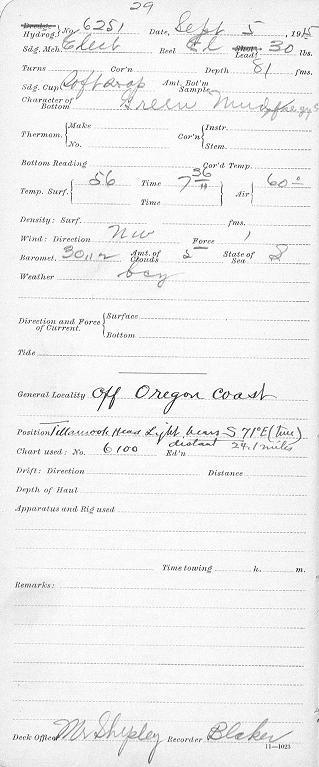 29
Dredge. Hydrog. } No. 6251 Date, Sept 5, 1915
Sdg. Mch. Elect Reel El Shot. Lead } 30 lbs.
Turns Cor'n Depth 81 fms.
Sdg. Cup Amt. Bot'm Sample
Character of Bottom Green Mud
Thermom. { Make No. } Cor'n { Instr. Stem.
Bottom Reading Cor'd Temp.
Temp. Surf. { 56 Time 7 36 Time } Air { 60°
Density: Surf. fms.
Wind: Direction NW Force 1
Baromet. 30.12 Amt. of Clouds 2 State of Sea S
Weather bcy
Direction and Force of Current. { Surface Bottom
Tide
General Locality Off Oregon Coast
Position Tillamook Head Light bears S 71° E (true)
distant 24.1 miles
Chart used: No. 6100 Ed'n
Drift: Direction Distance
Depth of Haul
Apparatus and Rig used
Time towing h. m.
Remarks:
Deck Officer Mr Shipley Recorder Blaker
11—1023